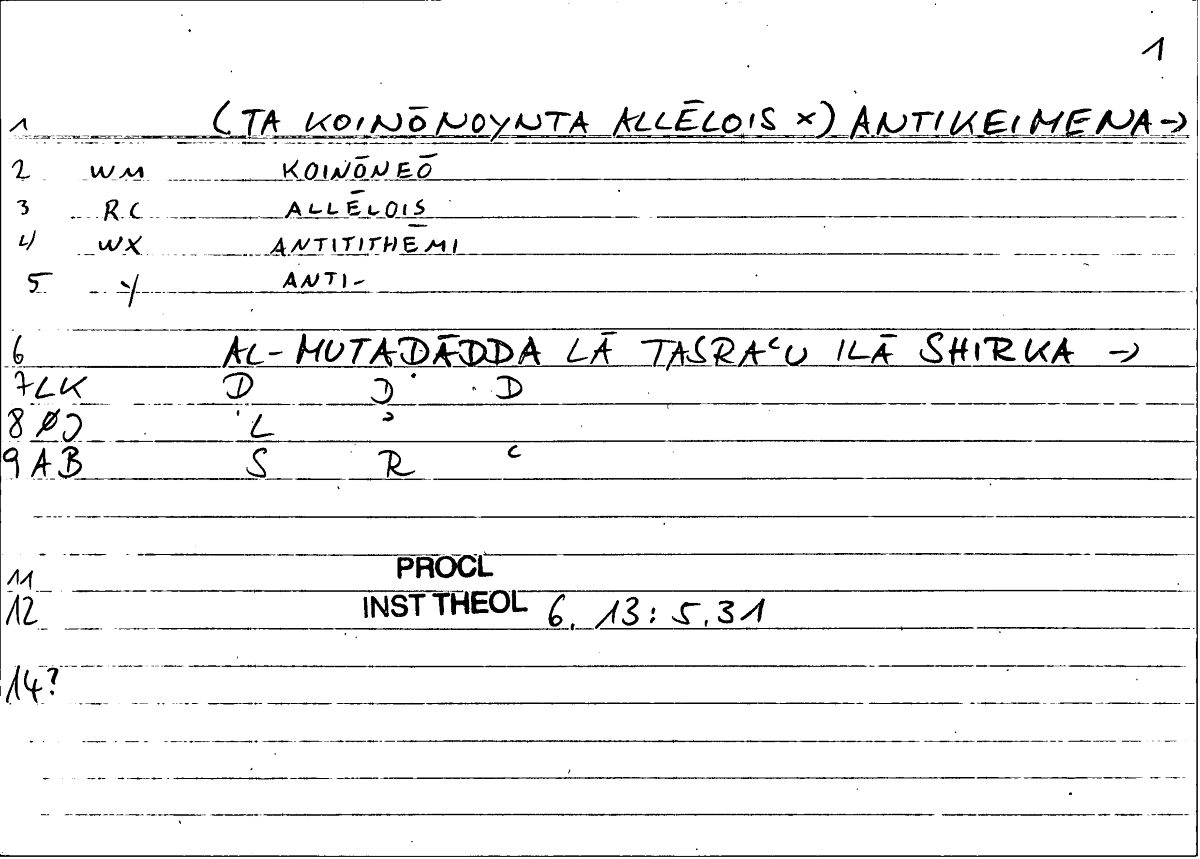 1
1 (TA KOINŌNOYNTA ALLĒLOIS ×) ANTIKEIMENA →
2 WM KOINŌNEŌ
3 RC ALLĒLOIS
4 WX ANTITITHĒMI
5 Y ANTI-
6 AL-MUTADĀDDA LĀ TASRAʿU ILĀ SHIRKA →
7 LK Ḍ D D
8 ØJ L ʾ
9 AB S R ʿ
11 PROCL
12 INST THEOL 6. 13: 5.31
14?